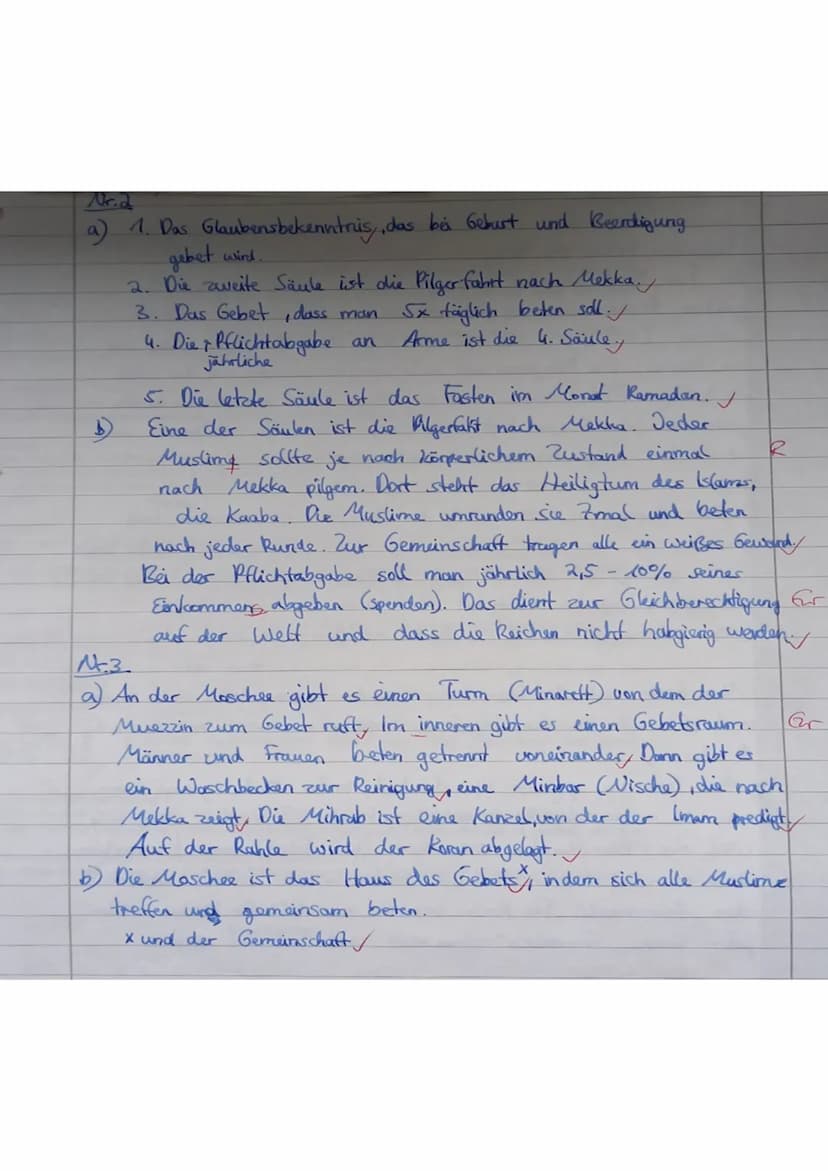 Nr.2
a) 1. Das Glaubensbekenntnis, das bei Geburt und Beerdigung
gebet wird.
2. Die zweite Säule ist die Pilgerfahrt nach Mekka.
3. Das Gebet, dass man 5x täglich beten soll.
4. Die Pflichtabgabe an Arme ist die 4. Säule.
jährliche
5. Die letzte Säule ist das Fasten im Monat Ramadan.
b) Eine der Säulen ist die Pilgerfahrt nach Mekka. Jeder
Muslim sollte je nach körperlichem Zustand einmal R
nach Mekka pilgern. Dort steht das Heiligtum des Islams,
die Kaaba. Die Muslime umrunden sie 7mal und beten
nach jeder Runde. Zur Gemeinschaft tragen alle ein weißes Gewand.
Bei der Pflichtabgabe soll man jährlich 2,5 - 10% seines
Einkommens abgeben (spenden). Das dient zur Gleichberechtigung Gr
auf der Welt und dass die Reichen nicht habgierig werden.
Nr.3
a) An der Moschee gibt es einen Turm (Minarett) von dem der
Muezzin zum Gebet ruft. Im inneren gibt es einen Gebetsraum. Gr
Männer und Frauen beten getrennt voneinander. Dann gibt es
ein Waschbecken zur Reinigung, eine Minbar (Nische), die nach
Mekka zeigt. Die Mihrab ist eine Kanzel, von der der Imam predigt.
Auf der Rahle wird der Koran abgelegt.
b) Die Moschee ist das Haus des Gebets x, indem sich alle Muslime
treffen und gemeinsam beten.
x und der Gemeinschaft